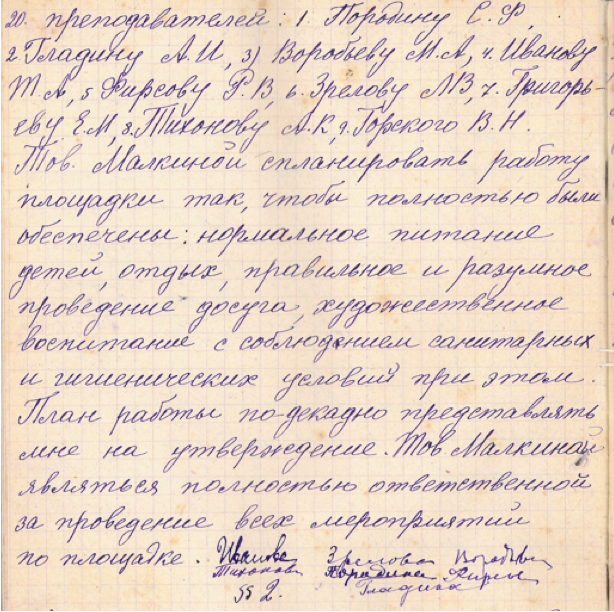 20. преподавателей: 1. Породину С. Ф,
2 Гладину А. И, 3) Воробьеву М. А, 4. Иванову
Т. А, 5 Фирсову Р. В, 6. Зрелову Л В, 7. Григорь-
еву Е. М, 8. Тихонову А. К, 9. Горского В. Н.
Тов. Малкиной спланировать работу
площадки так, чтобы полностью были
обеспечены: нормальное питание
детей, отдых, правильное и разумное
проведение досуга, художественное
воспитание с соблюдением санитарных
и гигиенических условий при этом.
План работы по-декадно представлять
мне на утверждение. Тов. Малкиной
являться полностью ответственной
за проведение всех мероприятий
по площадке. Иванова Зрелова
Тихонова Породина
Гладина
§§ 2.